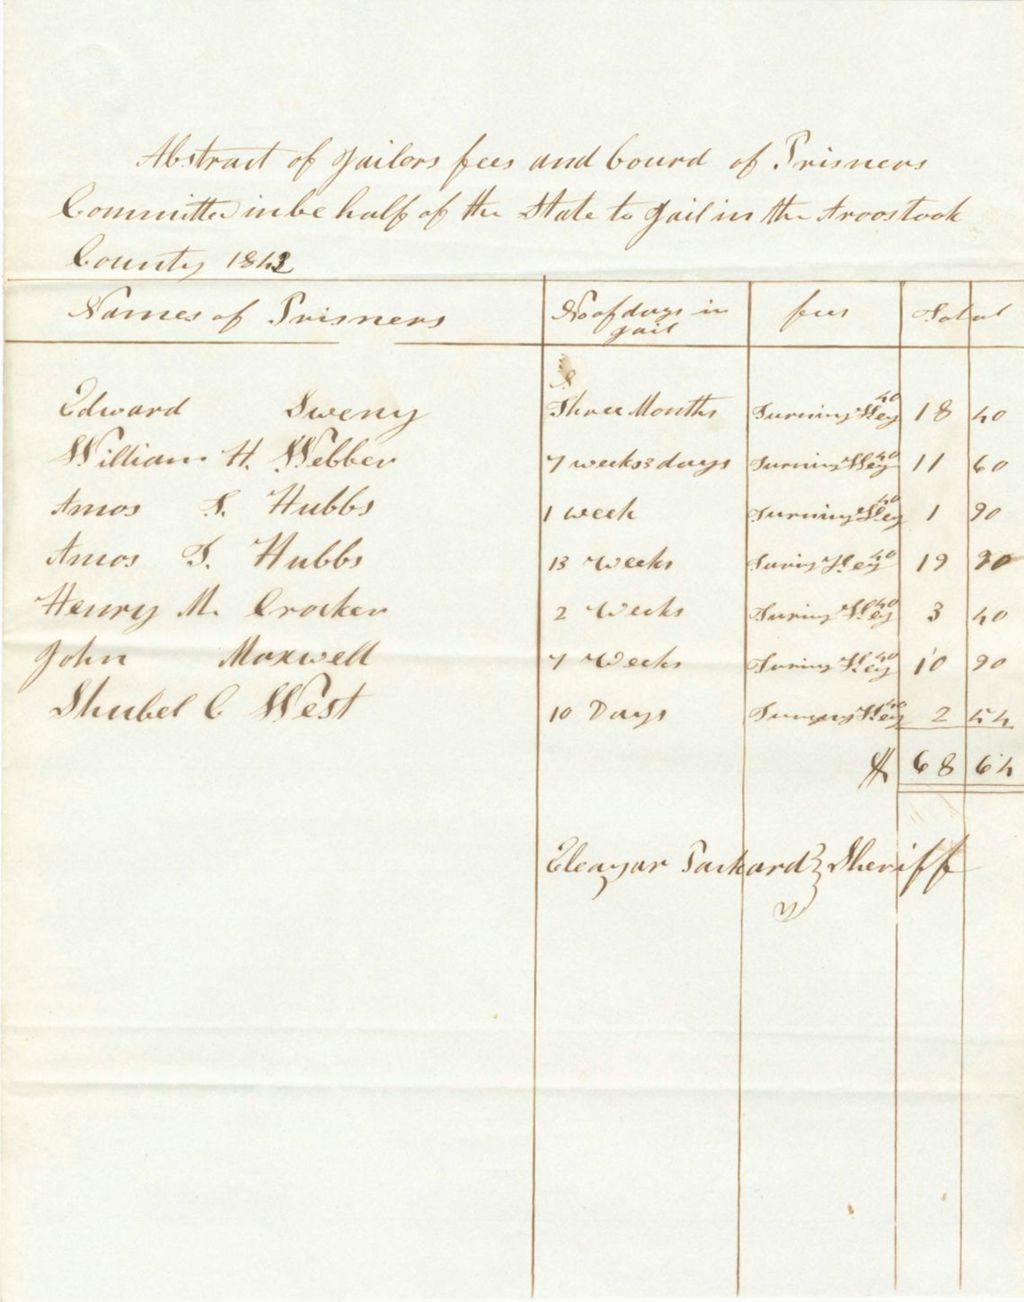 Abstract of Jailors fees and bourd of Prisners
Committed in be half of the State to Jail in the Aroostook
County 1843
Names of Prisners No of days in jail fees Total
Edward Sweny Three Months Turning Key 40 18 40
William H. Webber 7 weeks 3 days Turning Key 40 11 60
Amos S. Hubbs 1 week Turning Key 40 1 90
Amos T. Hubbs 13 Weeks Turing Key 40 19 90
Henry M. Crocker 2 Weeks Turing Key 40 3 40
John Maxwell 7 Weeks Turing Key 40 10 90
Shubel C West 10 Days Turning Key 40 2 54
$ 68 64
Eleazar Packard Sheriff